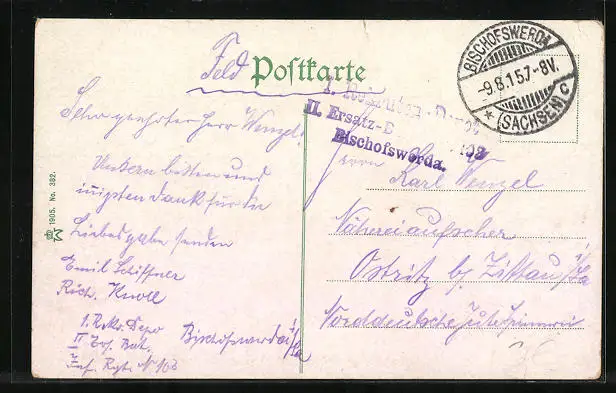 Feld Postkarte
BISCHOFSWERDA
-9.8.15.7-8V.
* (SACHSEN) C
I. Rekruten-Depot
II. Ersatz-B
102
Bischofswerda.
Sehr geehrter Herr Wenzel!
Unsern besten und
innigsten Dank für die
Liebesgabe senden
Emil Schiffner
Rich. Knoll
1. Rekr. Depo Bischofswerda i/Sa
II Ers. Bat.
Inf. Rgt. No 102
1905. No. 382.
Herrn
Karl Wenzel
Nähereiaufseher
Ostritz b/ Zittau i/Sa
Norddeutsche Jutespinnerei